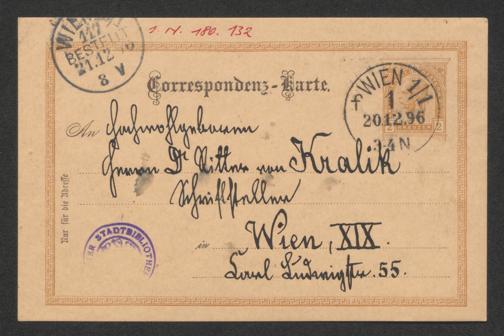 1. N. 180.132
WIEN
117
BESTELLT
21.12.96
8 V
Correspondenz-Karte.
WIEN 1/1
1
20.12.96
3-4 N
2 2
An Hochwohlgeboren
Herrn Dr Ritter von Kralik
Schriftsteller
in Wien, XIX.
Carl Ludwigstr. 55.
Nur für die Adresse
STADTBIBLIOTHEK